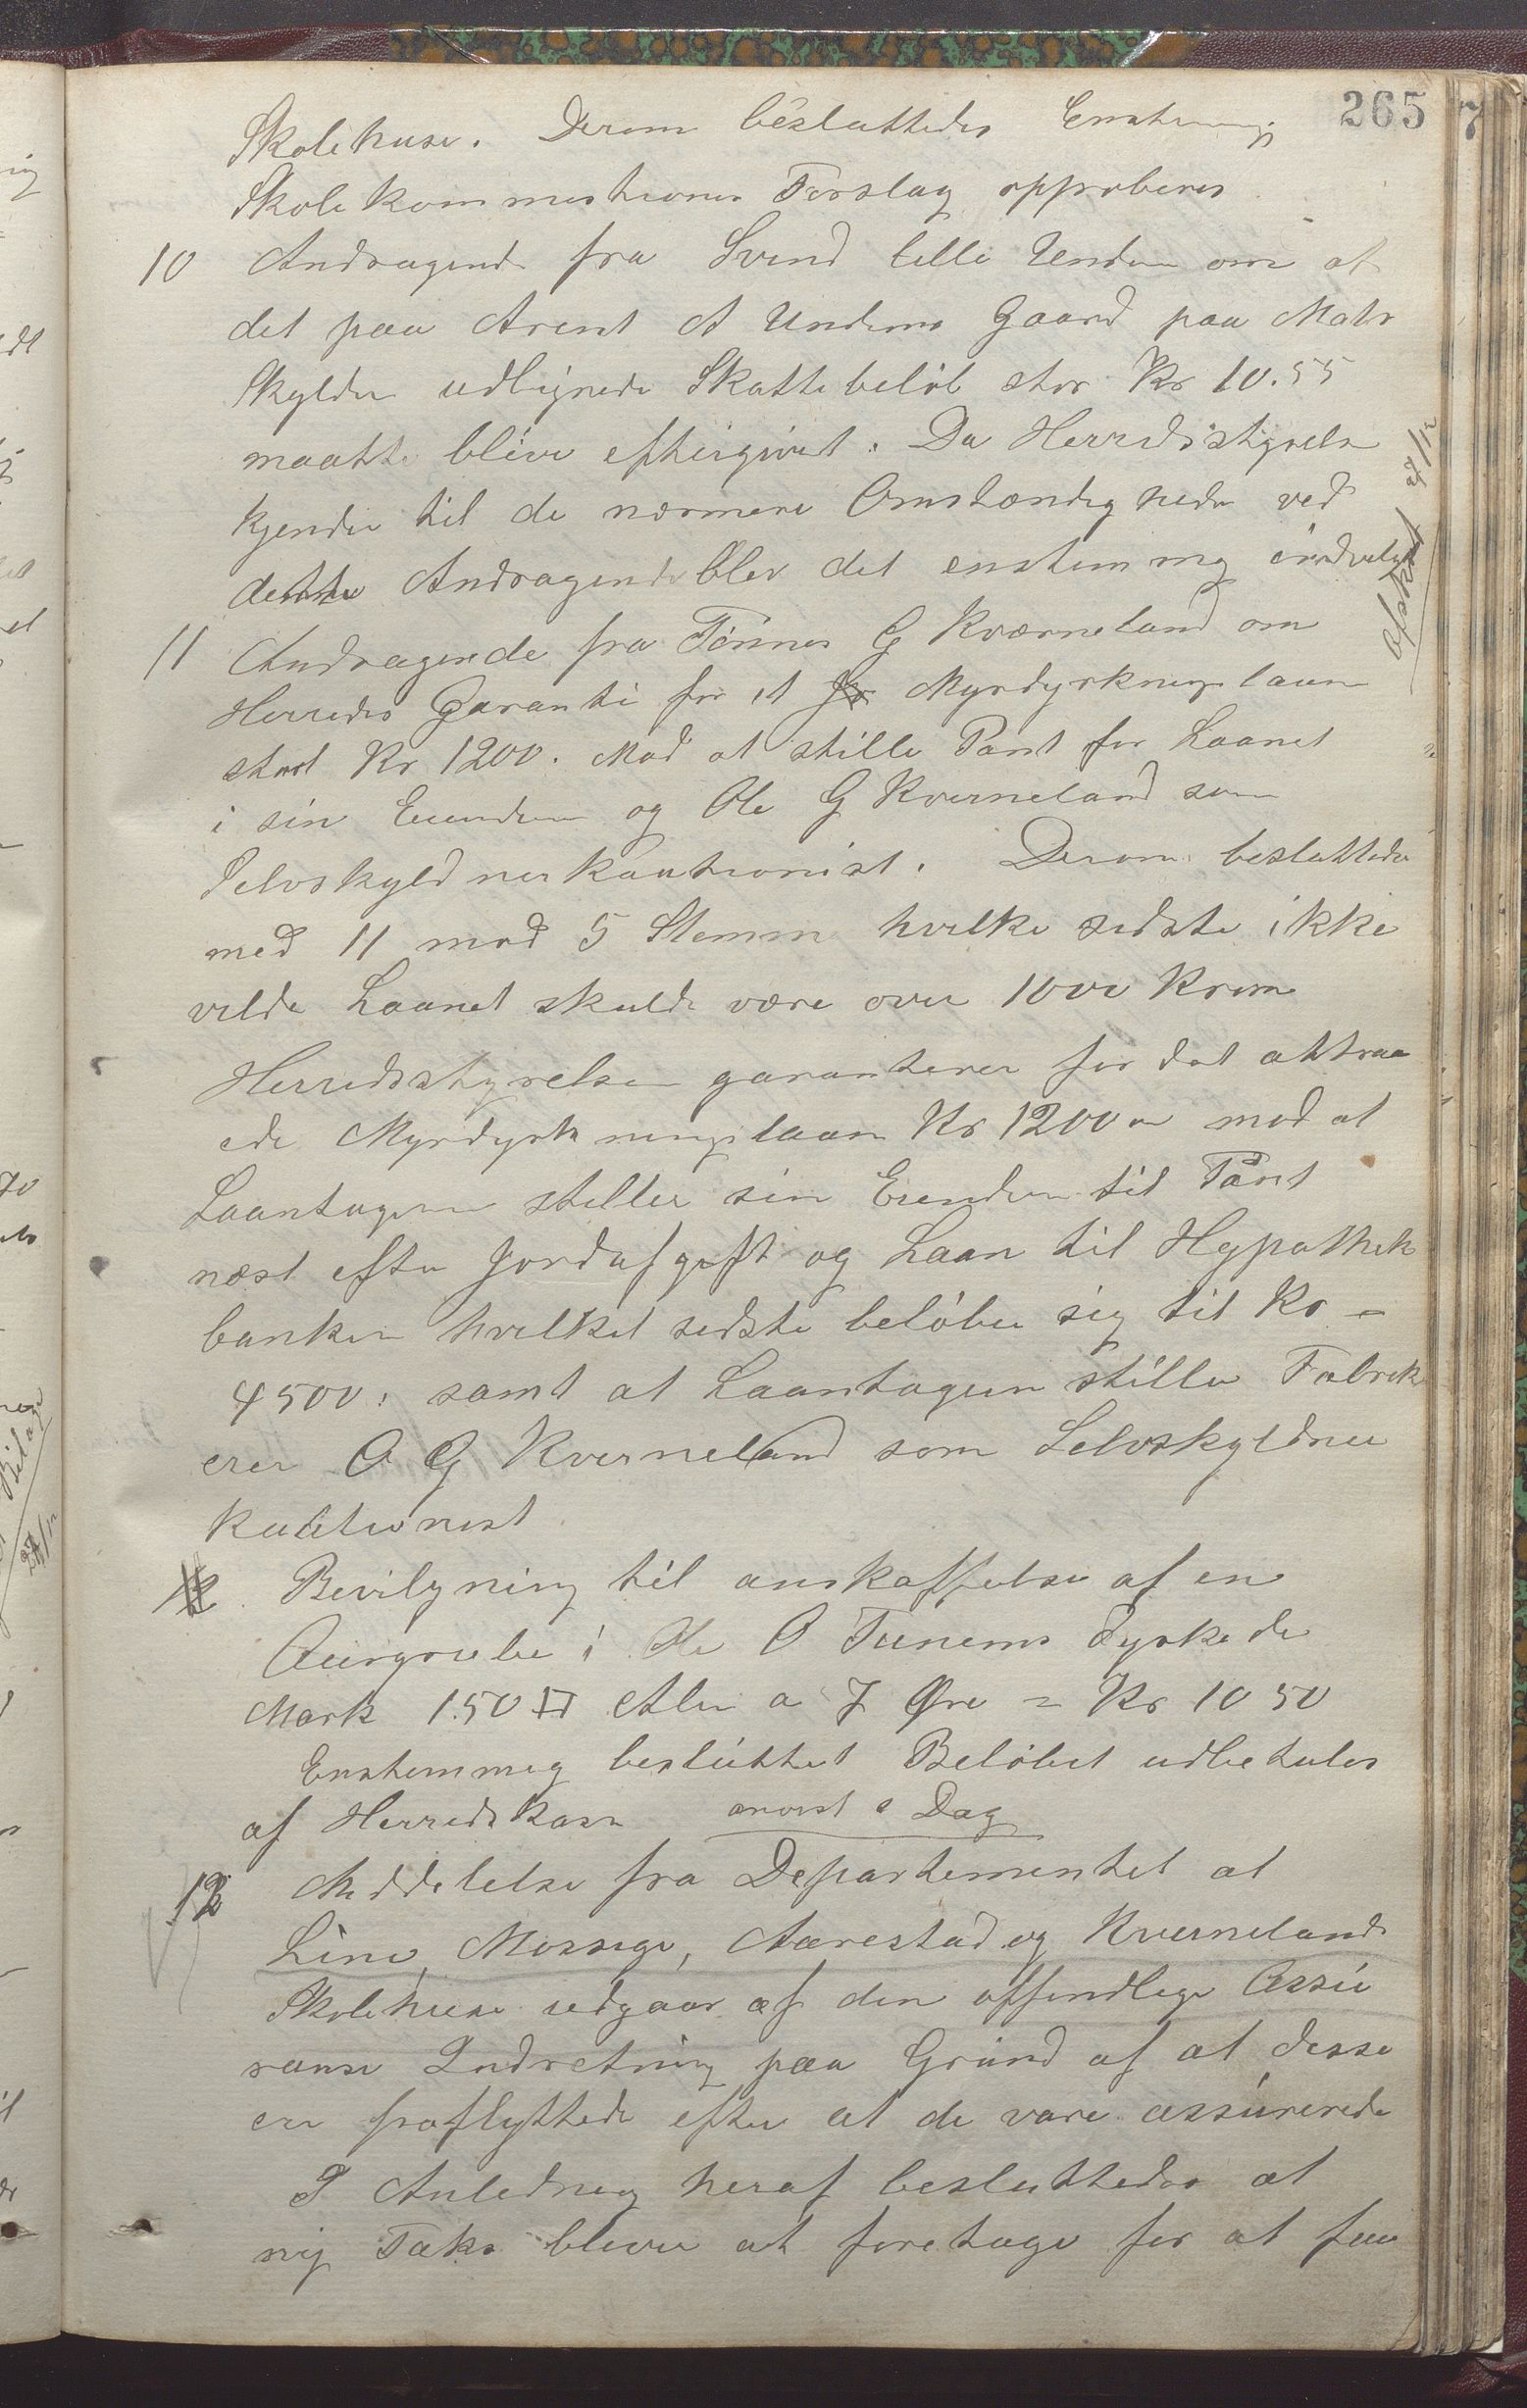 265
Skolehuse. Derom besluttedes Enstemmig
Skolekommisionens Forslag approberes
10 Andragende fra Svend lille Undem om at
det paa Arent A Undems Gaard paa Matr
Skylden udlignede Skattebeløb stor Kr 10.55
maatte blive eftergivet. Da Herredsstyrelsen
kjender til de nærmere Omstændigheder ved
dette Andragende blev det enstemmig indvilget
Afskrevet 27/12
11 Andragende fra Tønnes G Kværneland om
Herredes Garanti for et Myrdyrknings laan
stort Kr 1200. Mod at stille Pant for Laanet
i sin Eiendom og Ole G Kverneland som
Selvskyldnerkautionist. Derom besluttedes
med 11 mod 5 Stemmer hvilke sidste ikke
vilde Laanet skulde være over 1000 Kroner
Herredsstyrelsen garanterer for det attraa
ede Myrdyrkningslaan Kr 1200 mod at
Laantageren stiller sin Eiendom til Pant
næst efter Jordafgift og Laan til Hypothek
banken hvilket sidste beløber sig til Kr =
4500, samt at Laantageren stiller Fabrik
erer O G Kverneland som Selvskyldner
kautionist
Bevilgning til anskaffelse af en
Aurgrube i Ole O Tunems dyrkede
Mark 150 □ Alen a 7 Øre = Kr 10 50
Enstemmig besluttet Beløbet udbetales
af Herredskassen anvist s Dag
12 Meddelelse fra Departementet at
Line, Mossige, Aarestad og Kvernelands
Skolehuse udgaar af den offendlige Assu
ranse Indretning paa Grund af at disse
er fraflyttede efter at de vare assurerede
I Anledning heraf besluttedes at
ny Takst bliver at foretage for at faa